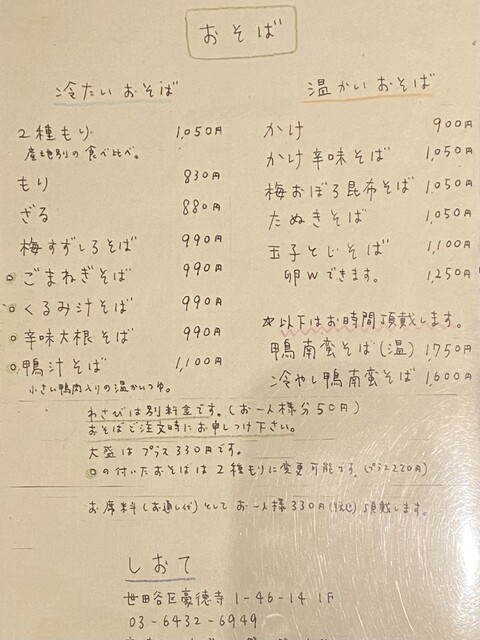 おそば
冷たいおそば
2種もり 1,050円
産地別の食べ比べ。
もり 830円
ざる 880円
梅すずしろそば 990円
○ごまねぎそば 990円
○くるみ汁そば 990円
○辛味大根そば 990円
○鴨汁そば 1,100円
小さい鴨肉入りの温かいつゆ。
温かいおそば
かけ 900円
かけ辛味そば 1,050円
梅おぼろ昆布そば 1,050円
たぬきそば 1,050円
玉子とじそば 1,100円
卵Wできます。 1,250円
☆以下はお時間頂戴します。
鴨南蛮そば(温) 1,750円
冷やし鴨南蛮そば 1,600円
わさびは別料金です。(お一人様分50円)
おそばご注文時にお申しつけ下さい。
大盛はプラス330円です。
○の付いたおそばは2種もりに変更可能です。(プラス220円)
お席料(お通し代)として お一人様330円(税込)頂戴します。
しおて
世田谷区豪徳寺1-46-14 1F
03-6432-6949